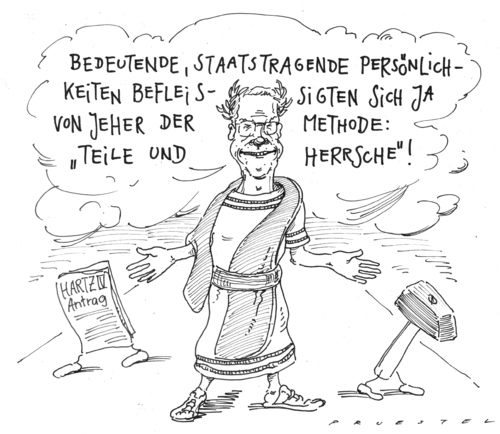 BEDEUTENDE, STAATSTRAGENDE PERSÖNLICH-
KEITEN BEFLEIS- SIGTEN SICH JA
VON JEHER DER METHODE:
„TEILE UND HERRSCHE“!
HARTZ IV
Antrag
PRUESTEL